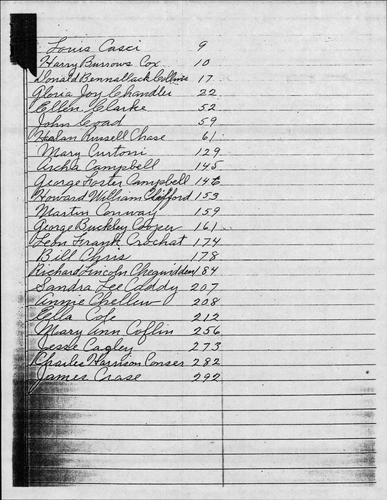 Louis Casci 9
Harry Burrows Cox 10
Donald Bennallack Collins 17
Gloria Joy Chandler 22
Ellen Clarke 52
John Coad 59
Harlan Russell Chase 61
Mary Curtoni 129
Archie Campbell 145
George Foster Campbell 146
Howard William Clifford 153
Martin Conway 159
George Buckley 161
Leon Frank Crochat 174
Bill Chris 178
Richard Lincoln Chegwidden 184
Sandra Lee Caddy 207
Annie Chellew 208
Ella Cole 212
Mary Ann Coflin 256
Jesse Cagley 273
Charles Harrison Conser 282
James Crase 292